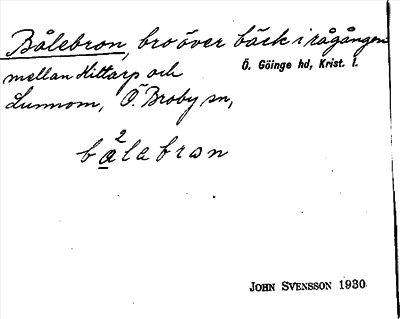 Bålebron, bro över bäck i rågången
mellan Hittarp och
Ö. Göinge hd, Krist. l.
Lunnom, Ö. Broby sn,
2
bålebron
JOHN SVENSSON 1930